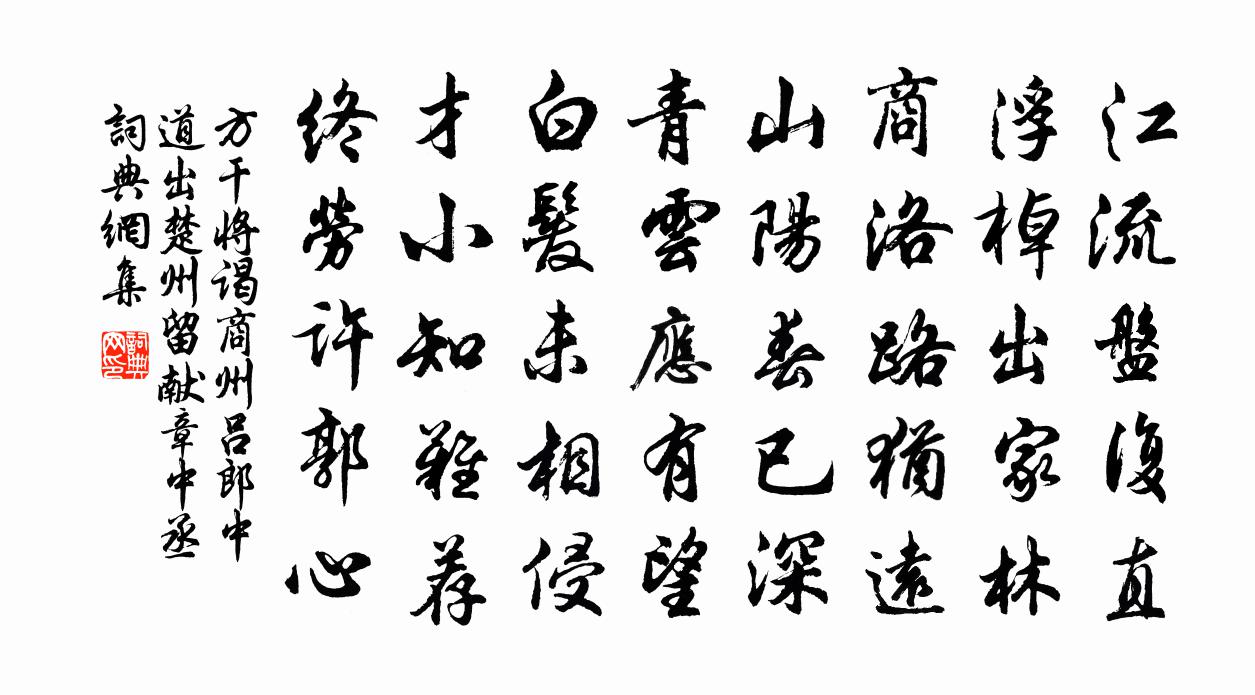 江流盤復直
浮棹出家林
商洛路猶遠
山陽春已深
青雲應有望
白髮未相侵
才小知難荐
終勞許郭心
方干将谒商州吕郎中
道出楚州留献章中丞
詞典網集
詞典网印